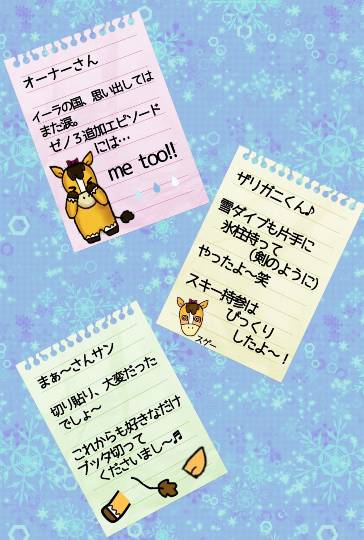 オーナーさん
イーラの国、思い出しては
また涙。
ゼノ3追加エピソード
には…
me too!!
ザリガニくん♪
雪ダイブも片手に
氷柱持って
(剣のように)
やったよ〜笑
スキー持参は
びっくり
したよ〜!
スゲー
まぁ〜さんサン
切り貼り、大変だった
でしょ〜
これからも好きなだけ
ブッタ切って
くださいまし〜♬